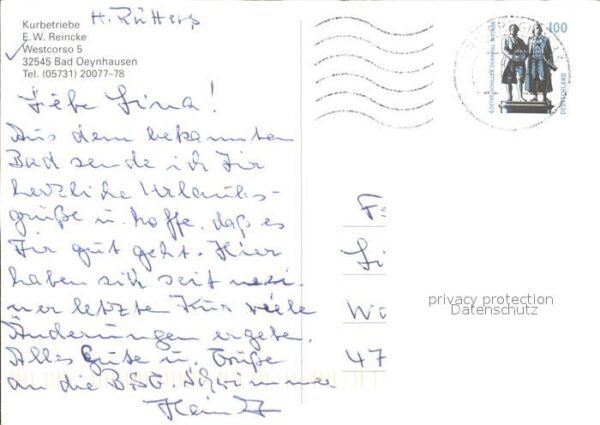 H. Rütters
Kurbetriebe
E. W. Reincke
Westcorso 5
32545 Bad Oeynhausen
Tel. (05731) 20077-78
Liebe Lina!
Aus dem bekannten
Bad sende ich Dir
herzliche Urlaubs-
grüße u. hoffe, daß es
Dir gut geht. Hier
haben sich seit mei-
ner letzten Kur viele
Änderungen ergeben.
Alles Gute u. Grüße
an die BSG. Schwimmer
Heinz
100
GOETHE-SCHILLER-DENKMAL WEIMAR
DEUTSCHLAND
Li
47
privacy protection
Datenschutz